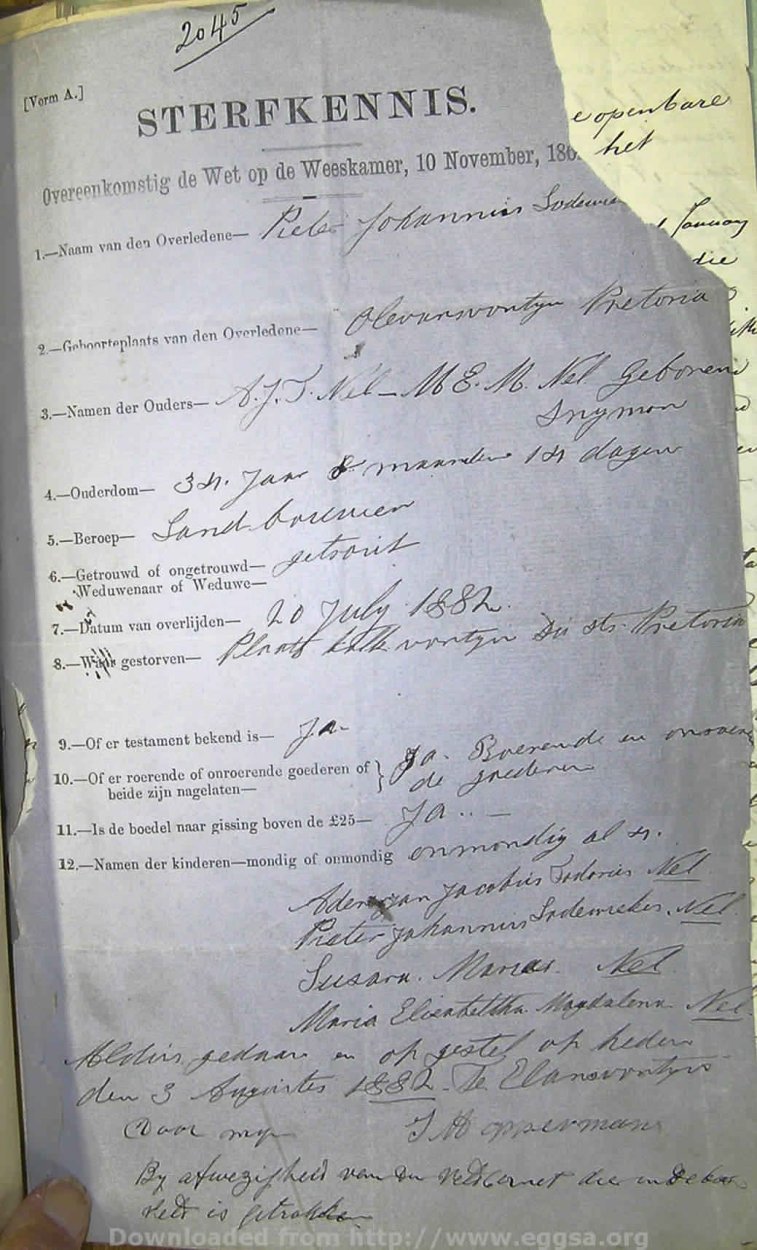 2045
[Vorm A.]
STERFKENNIS.
Overeenkomstig de Wet op de Weeskamer, 10 November, 186
e openbare
het
January
die
1.—Naam van den Overledene— Pieter Johannis Lodewie
2.—Geboorteplaats van den Overledene— Olevansvontyn Pretoria
3.—Namen der Ouders— A.J.T. Nel – M.E.M. Nel Geboren
Snyman
4.—Ouderdom— 34. Jaar 8 maanden 14 dagen
5.—Beroep— Landbouwer
6.—Getrouwd of ongetrouwd— getrout
Weduwenaar of Weduwe—
7.—Datum van overlijden— 20 July 1882.
8.—Waar gestorven— Plaats kalkvontyn Dis sts. Pretoria
9.—Of er testament bekend is— Ja.
10.—Of er roerende of onroerende goederen of } Ja. Roerende en onroeren
beide zijn nagelaten— de goederen
11.—Is de boedel naar gissing boven de £25— Ja..—
12.—Namen der kinderen—mondig of onmondig onmondig al 4.
Aderejan Jacobus Todorus Nel
Pieter Johannis Lodewiekes. Nel.
Susara. Maria. Nel
Maria Elisabettha Magdalena. Nel.
Aldus gedaan en op gestel op heden
den 3 Augustes 1882. Te Elansvontyn
Door my J H oppermans
By afwezigheid van den Veldcornet die
veld is getrokken
Downloaded from http://www.eggsa.org